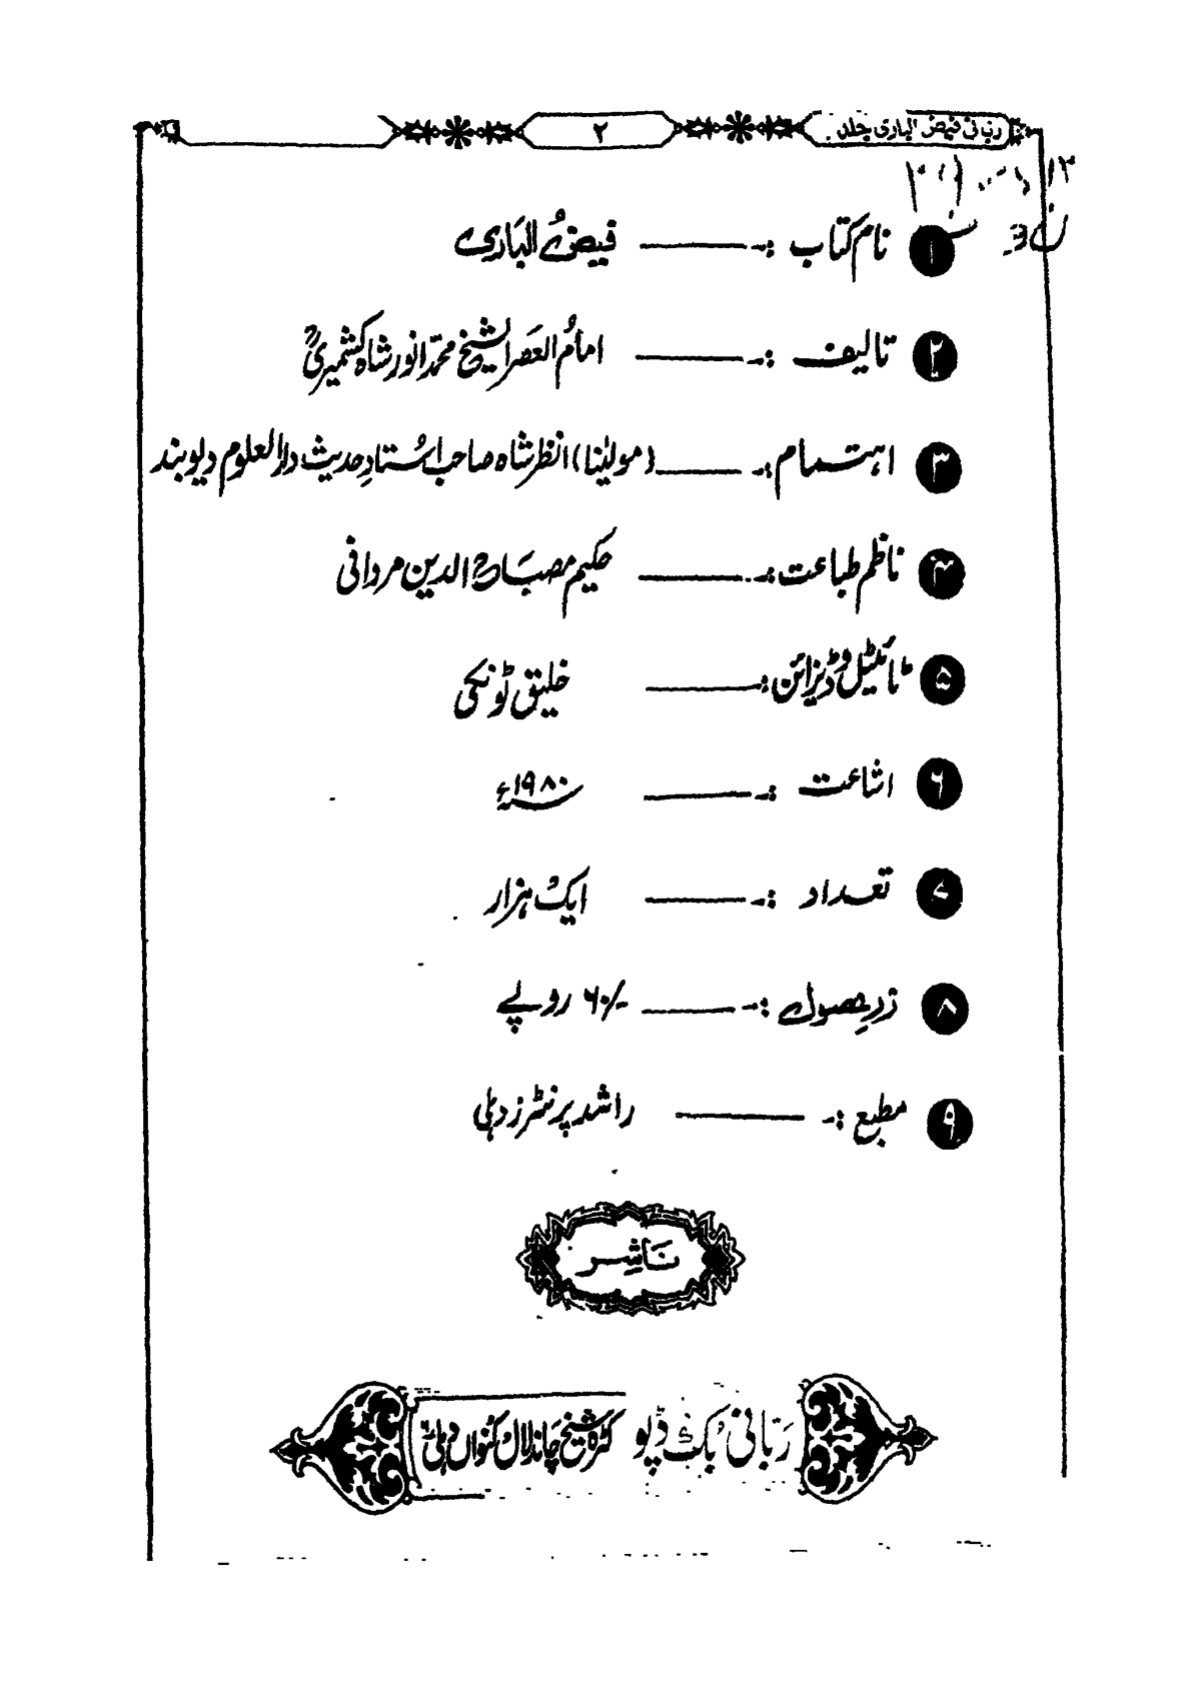 ربانی فیض الباری جلد
۲
۱ نام کتاب :- فیضُ البَاری
۲ تالیف :- امامُ العَصر الشیخ محمّد انور شاہ کشمیریؒ
۳ اہتمام :- (مولیٰنا) انظر شاہ صاحب اُستادِ حدیث دارالعلوم دیوبند
۴ ناظم طباعت :- حکیم مصباح الدین مردانی
۵ ٹائیٹل و ڈیزائن :- خلیق ٹونکی
۶ اشاعت :- ۱۹۸۰ء
۷ تعداد :- ایک ہزار
۸ زرِ حصول :- ۶۰/- روپے
۹ مطبع :- راشد پرنٹرز دہلی
نَاشِر
رَبّانی بُک ڈپو کٹرہ شیخ چاند لال کنواں دہلی ۶